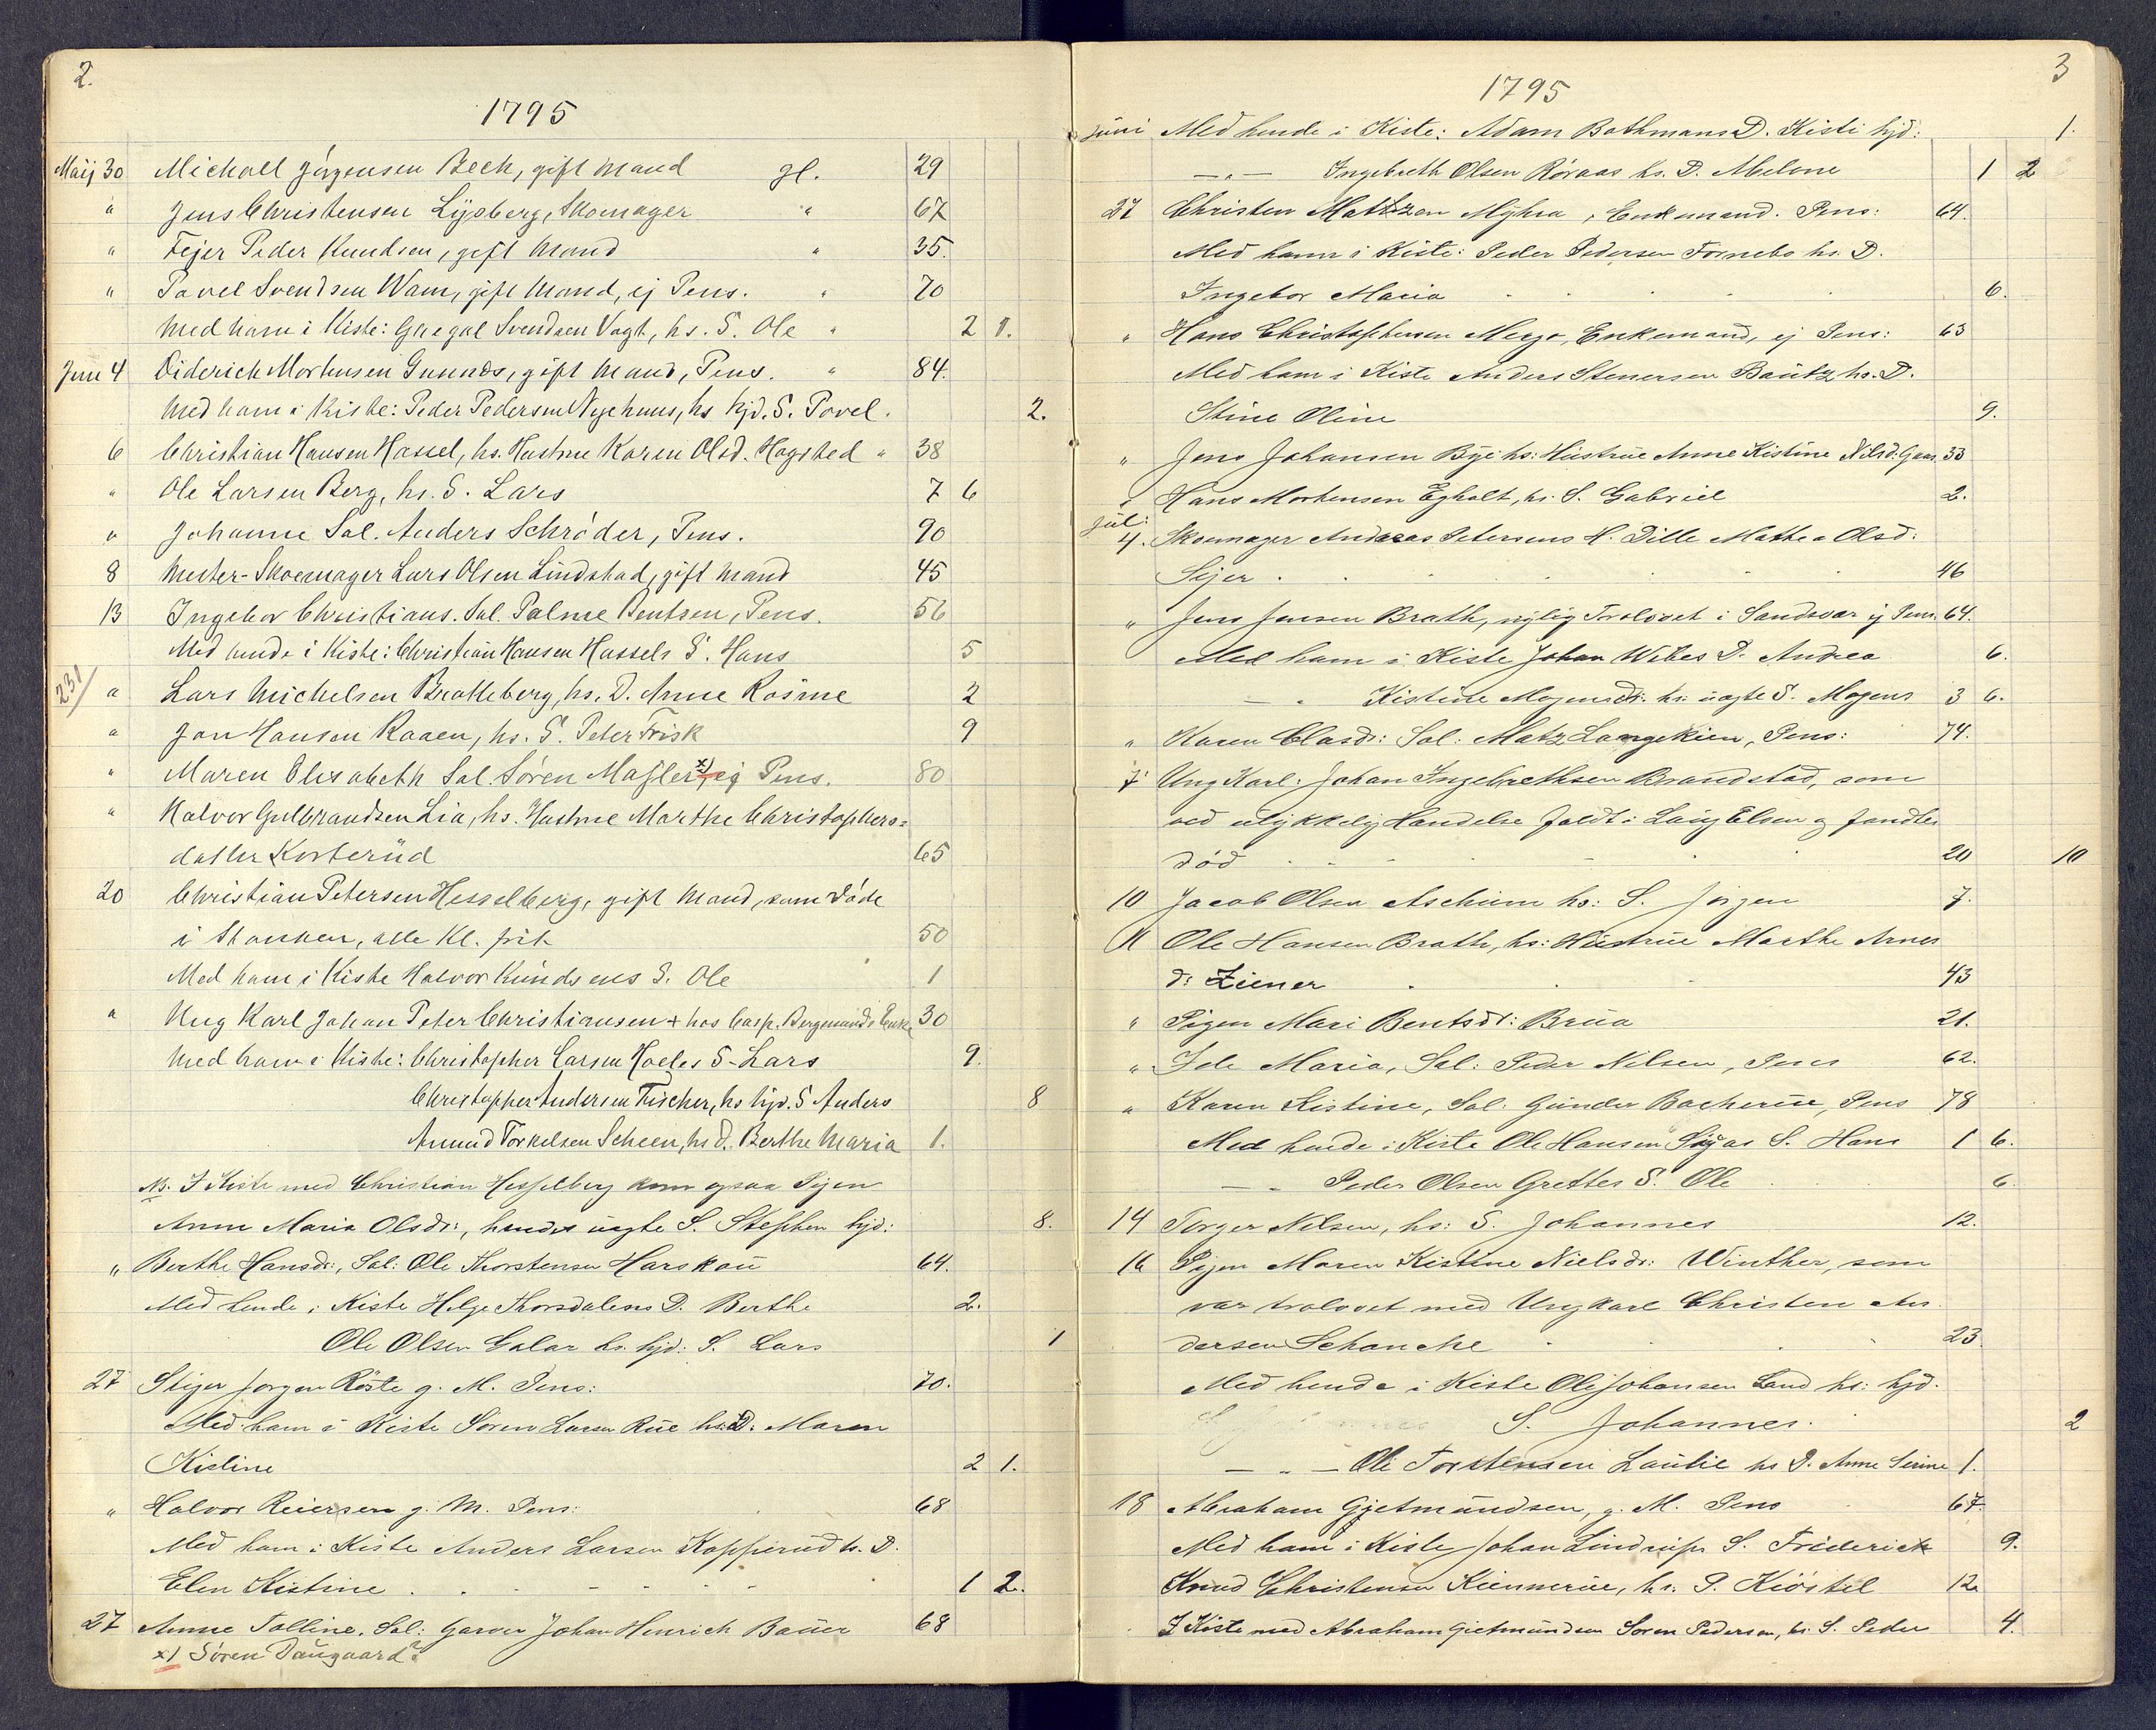 2.
1795
Maij 30 Michall Jörgensen Beck, gift Mand gl. 29
" Jens Christensen Lysberg, Skomager " 67
" Fejer Peder Knudsen, gift Mand " 35.
" Povel Svendsen Wam, gift Mand, ej Pens. " 70
Med ham i Kiste: Gregal Svendsen Vogt, hs. S. Ole " 2 1.
Juni 4 Diderich Mortensen Gunnes, gift Mand, Pens. " 84.
Med ham i Kiste: Peder Pedersen Nyehuus, hs hjd. S. Povel. 2.
6 Christian Hansen Hassel, hs. Hustrue Karen Olsd. Hagsted " 38
" Ole Larsen Berg, hs. S. Lars 7 6
" Johanne Sal. Anders Schröder, Pens. 90
8 Mester-Skoemager Lars Olsen Lindstad, gift Mand 45
13 Ingebor Christians. Sal. Palme Bentsen, Pens. 56
Med hende i Kiste: Christian Hansen Hassels S. Hans 5
231/ " Lars Michelsen Bratteberg, hs. D. Anne Rosine 2
" Jon Hansen Raaen, hs. S. Peter Frisk 9
" Maren Elisabeth Sal. Søren Maßler x) ej Pens. 80
" Halvor Gulbrandsen Lia, hs. Hustrue Marthe Christophers=
datter Korterüd 65
20 Christian Petersen Hesselberg, gift Mand, som døde
i Skanken, alle Kl. frit 50
Med ham i Kiste Halvor Knudsens S. Ole 1
" Ung Karl Johan Peter Christiansen + hos Casp. Bergmands Enke 30
Med ham i Kiste: Christopher Larsen Hoeles S. Lars 9.
Christopher Andersen Fischer, hs hjd. S Anders 8
Amund Torkelsen Scheen, hs D. Berthe Maria 1.
NB. I Kiste med Christian Hesselberg kom ogsaa Pigen
Anne Maria Olsdr:, hendes uægte S. Stephen hjd: 8.
" Berthe Hansdr:, Sal: Ole Thorstensen Harskau 64.
Med hende i Kiste Helge Thorsdalens D. Berthe 2.
Ole Olsen Galar hs. hjd: S. Lars 1
27 Stiger Jorgen Röste g. M. Pens: 70.
Med ham i Kiste Soren Larsen Rüe hs: D: Maren
Kistine 2 1.
" Halvor Reiersen g. M. Pens: 68
Med ham i Kiste Anders Larsen Kopperud hs. D.
Elen Kistine 1 2.
27 Anne Talline, Sal: Garver Johan Henrich Bauer 68
x) Søren Daugaard?
3
1795
Juni Med hende i Kiste: Adam Bothmans D. Kisti hjd: 1.
— " — Ingebreth Olsen Röraas hs. D. Malone 1 2
27 Christen Mattzen Myhra, Enkemand. Pens: 64.
Med ham i Kiste: Peder Pedersen Fornebo hs. D.
Ingebor Maria 6.
" Hans Christophersen Merja, Enkemand, ej Pens: 63
Med ham i Kiste Anders Stenersen Bautz hs. D.
Stine Oline 9.
" Jens Johansen Bye hs: Hustrue Anne Kistine Nilsd: Gaas. 33
" Hans Mortensen Egholt, hs. S. Gabriel 2.
Jul: 4. Skoemager Andreas Petersens H. Dille Mathea Olsd:
Sejer 46
" Jens Jensen Brath, nylig Trolovet i Sandsvar ej Pens 64.
Med ham i Kiste Johan Wibes D. Andrea 6.
— " Kistine Mogensdr: hs: uægte S. Mogens 3 6.
" Karen Clasdr: Sal: Matz Langekien, Pens: 74.
7 Ung Karl: Johan Ingebrethsen Brandstad, som
ved ulykkelig Handelse faldt i Laug Elven og fandtes
død 20 10
10 Jacob Olsen Aschim hs: S. Jörgen 7.
11 Ole Hansen Brath, hs: Hustrue Marthe Arnes
d: Ziener 43
" Pigen Mari Bentsdr: Brua 21.
" Ide Maria, Sal: Peder Nilsen, Pens 62.
" Karen Kistine, Sal: Gunder Bacherüe, Pens 78
Med hende i Kiste Ole Hansen Sigas S. Hans 1 6.
— " Peder Olsen Grettes S. Ole 6
14 Torger Nilsen, hs: S. Johannes 12.
16 Pigen Maren Kistine Nielsdr: Winther, som
var trolovet med Ungkarl Christen An
dersen Schancke 23
Med hende i Kiste Ole Johansen Land hs: hjd.
S. Johannes. 2
— " — Ole Torstensen Laulie hs D. Anne Sirine 1.
18 Abraham Gjetmundsen, g. M. Pens 67.
Med ham i Kiste Johan Lindrups S. Fröderick 9.
Knud Christensen Kiennerüe, hs. S. Kiöstil 12
I Kiste med Abraham Gietmundsen Soren Pedersen, hs. S. Peder 4.